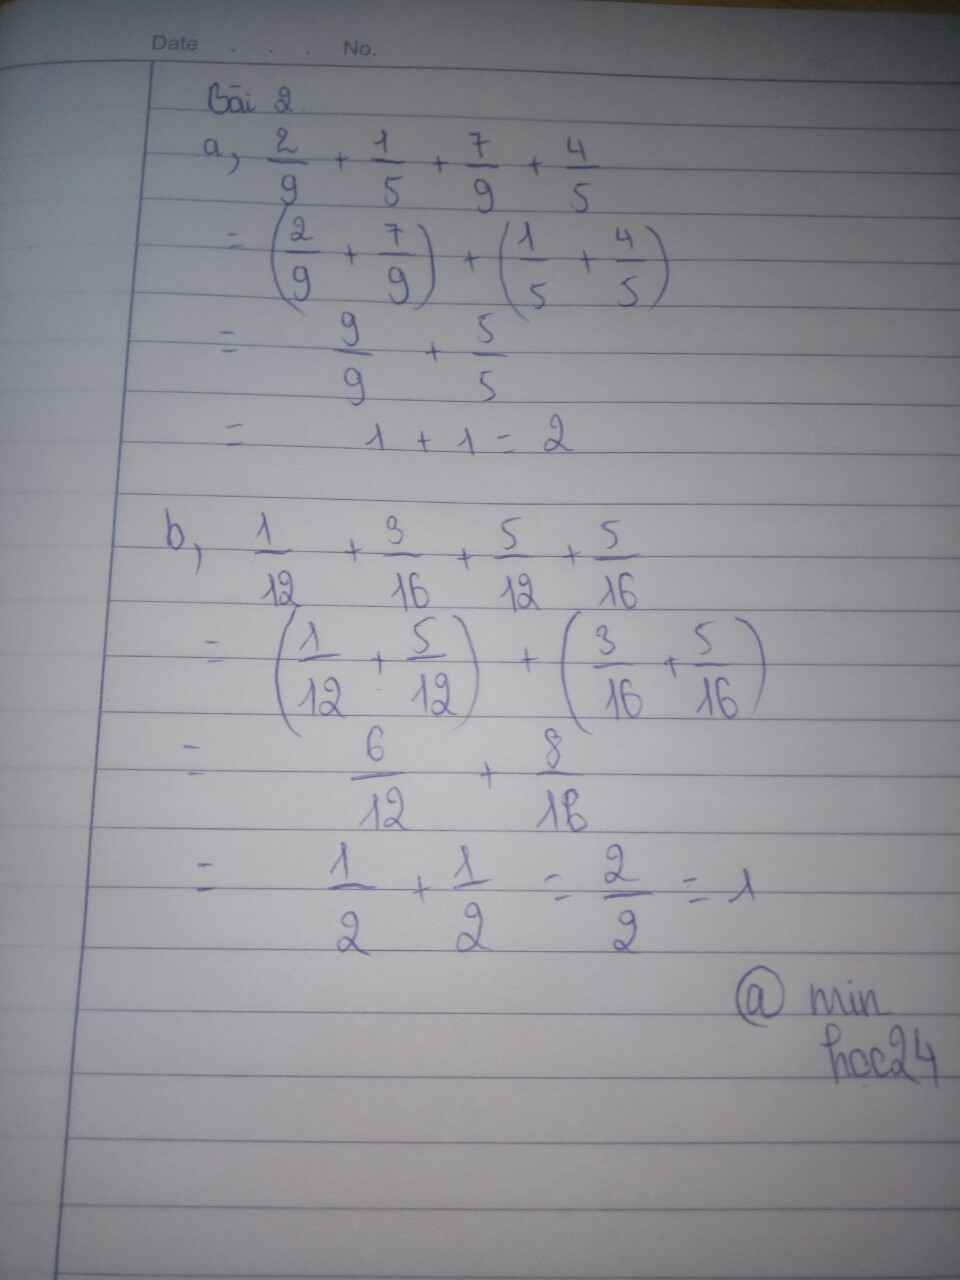 Date . . . No.
Bài 2
a, 2/9 + 1/5 + 7/9 + 4/5
= (2/9 + 7/9) + (1/5 + 4/5)
= 9/9 + 5/5
= 1 + 1 = 2
b, 1/12 + 3/16 + 5/12 + 5/16
= (1/12 + 5/12) + (3/16 + 5/16)
= 6/12 + 8/16
= 1/2 + 1/2 = 2/2 = 1
@ min
hoc24